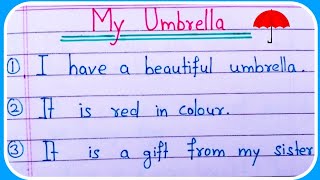 My Umbrella
① I have a beautiful umbrella.
② It is red in colour.
③ It is a gift from my sister